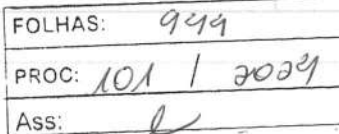 FOLHAS: 944
PROC: 101 / 2024
Ass: